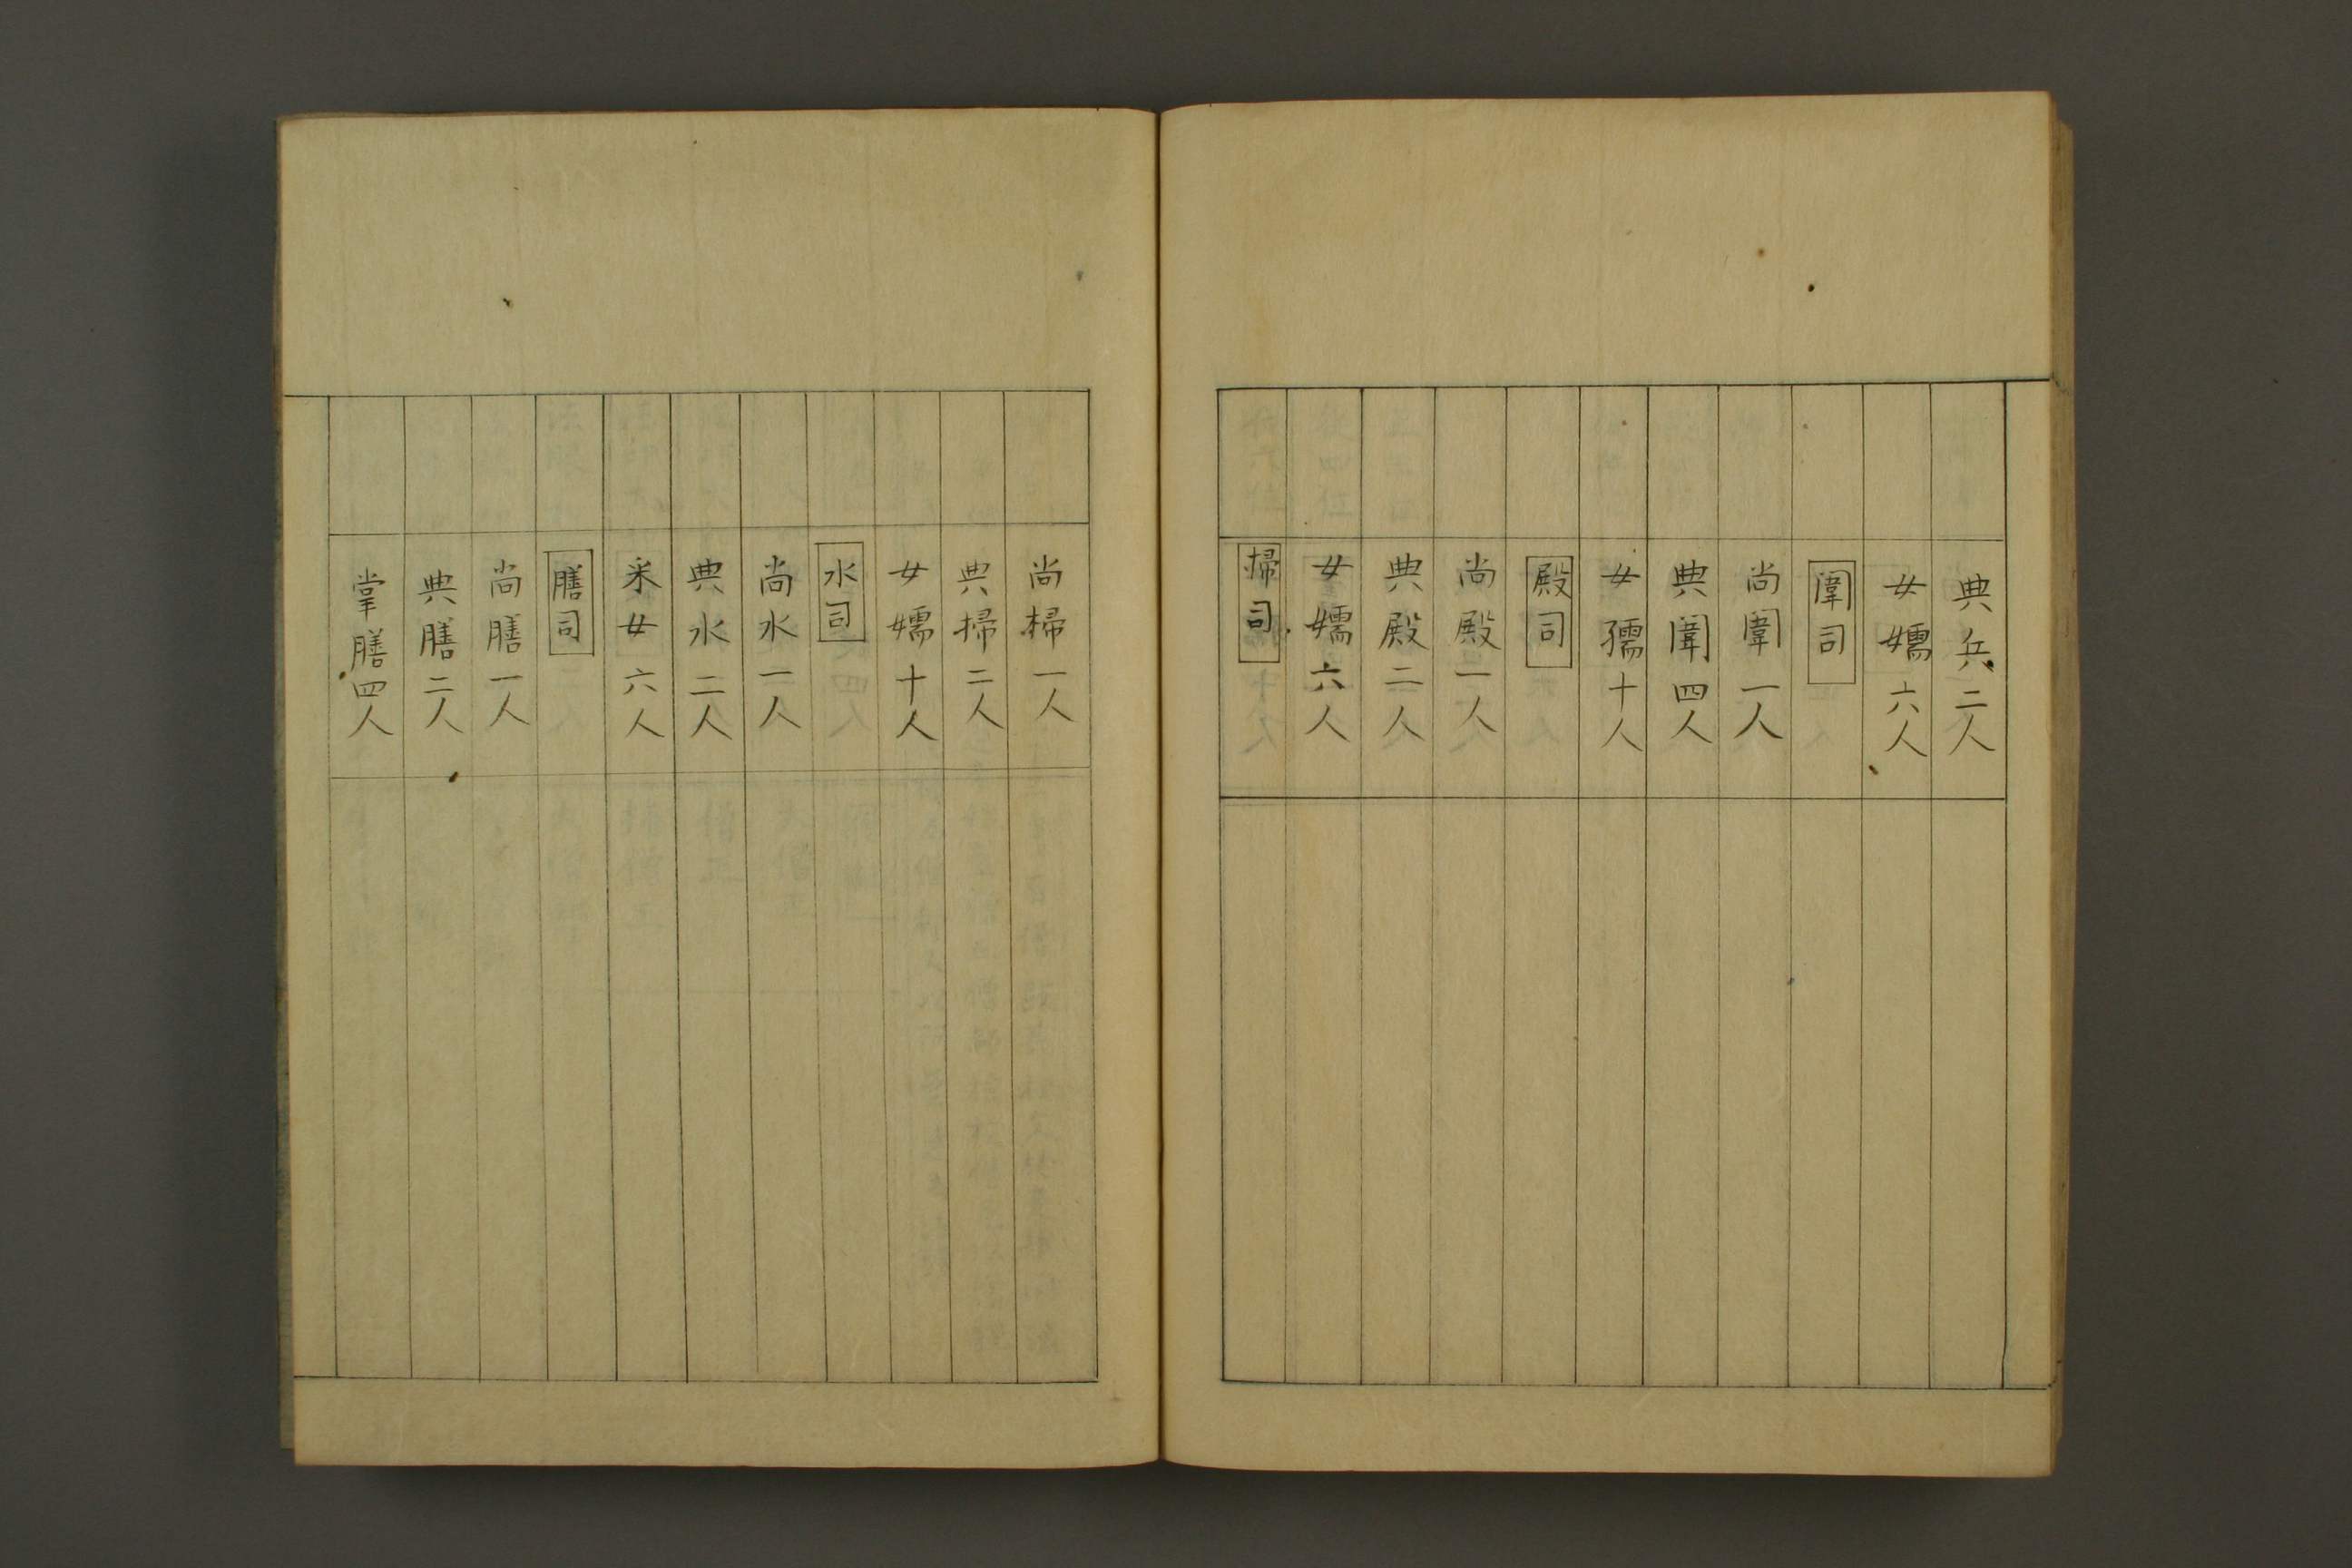 典兵二人
女嬬六人
闈司
尚闈一人
典闈四人
女孺十人
殿司
尚殿一人
典殿二人
女嬬六人
掃司
尚掃一人
典掃二人
女嬬十人
水司
尚水一人
典水二人
采女六人
膳司
尚膳一人
典膳二人
掌膳四人